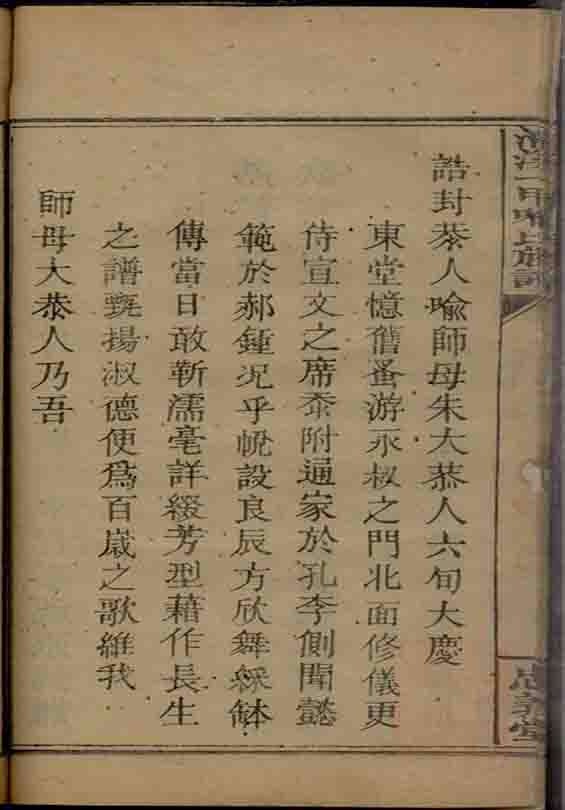 一甲喻氏族譜
堂
誥封恭人喻師母朱大恭人六旬大慶
東堂憶舊蚤游永叔之門北面修儀更
侍宣文之席忝附通家於孔李側聞懿
範於郝鍾况乎帨設良辰方欣舞綵缽
傳當日敢靳濡毫詳綴芳型藉作長生
之譜甄揚淑德便爲百嵗之歌維我
師母大恭人乃吾